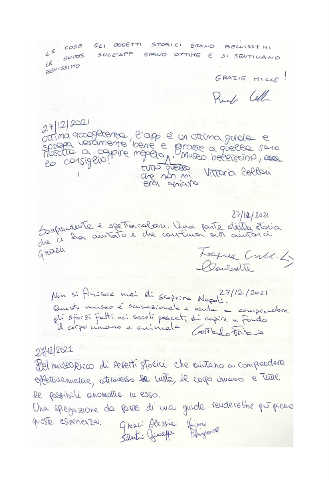 LE COSE GLI OGGETTI STORICI ERANO BELLISSIMI
LE GUIDE SULL'APP ERANO OTTIME E SI SENTIVANO
BENISSIMO
GRAZIE MILLE!
27/12/2021
Ottima accoglienza, l'app è un'ottima guida e
spiega veramente bene e grazie a quella sono
riuscita a capire meglio. Museo bellissimo,
lo consiglio!
tutto quello
che non mi
era chiaro
Vittoria
27/12/2021
Sorprendente e spettacolare. Una parte della storia
che ci ha aiutato e che continua ad aiutarci
Grazie
Non si finisce mai di scoprire Napoli.
27/12/2021
Questo museo è sensazionale e aiuta a comprendere
gli sforzi fatti nei secoli passati, di capire a fondo
il corpo umano e animale
27/12/2021
Bel museo ricco di reperti storici che aiutano a comprendere
attraverso la vista, il corpo umano e tutte
le possibili anomalie di esso.
Una spiegazione da parte di una guida renderebbe più piena
questa esperienza.